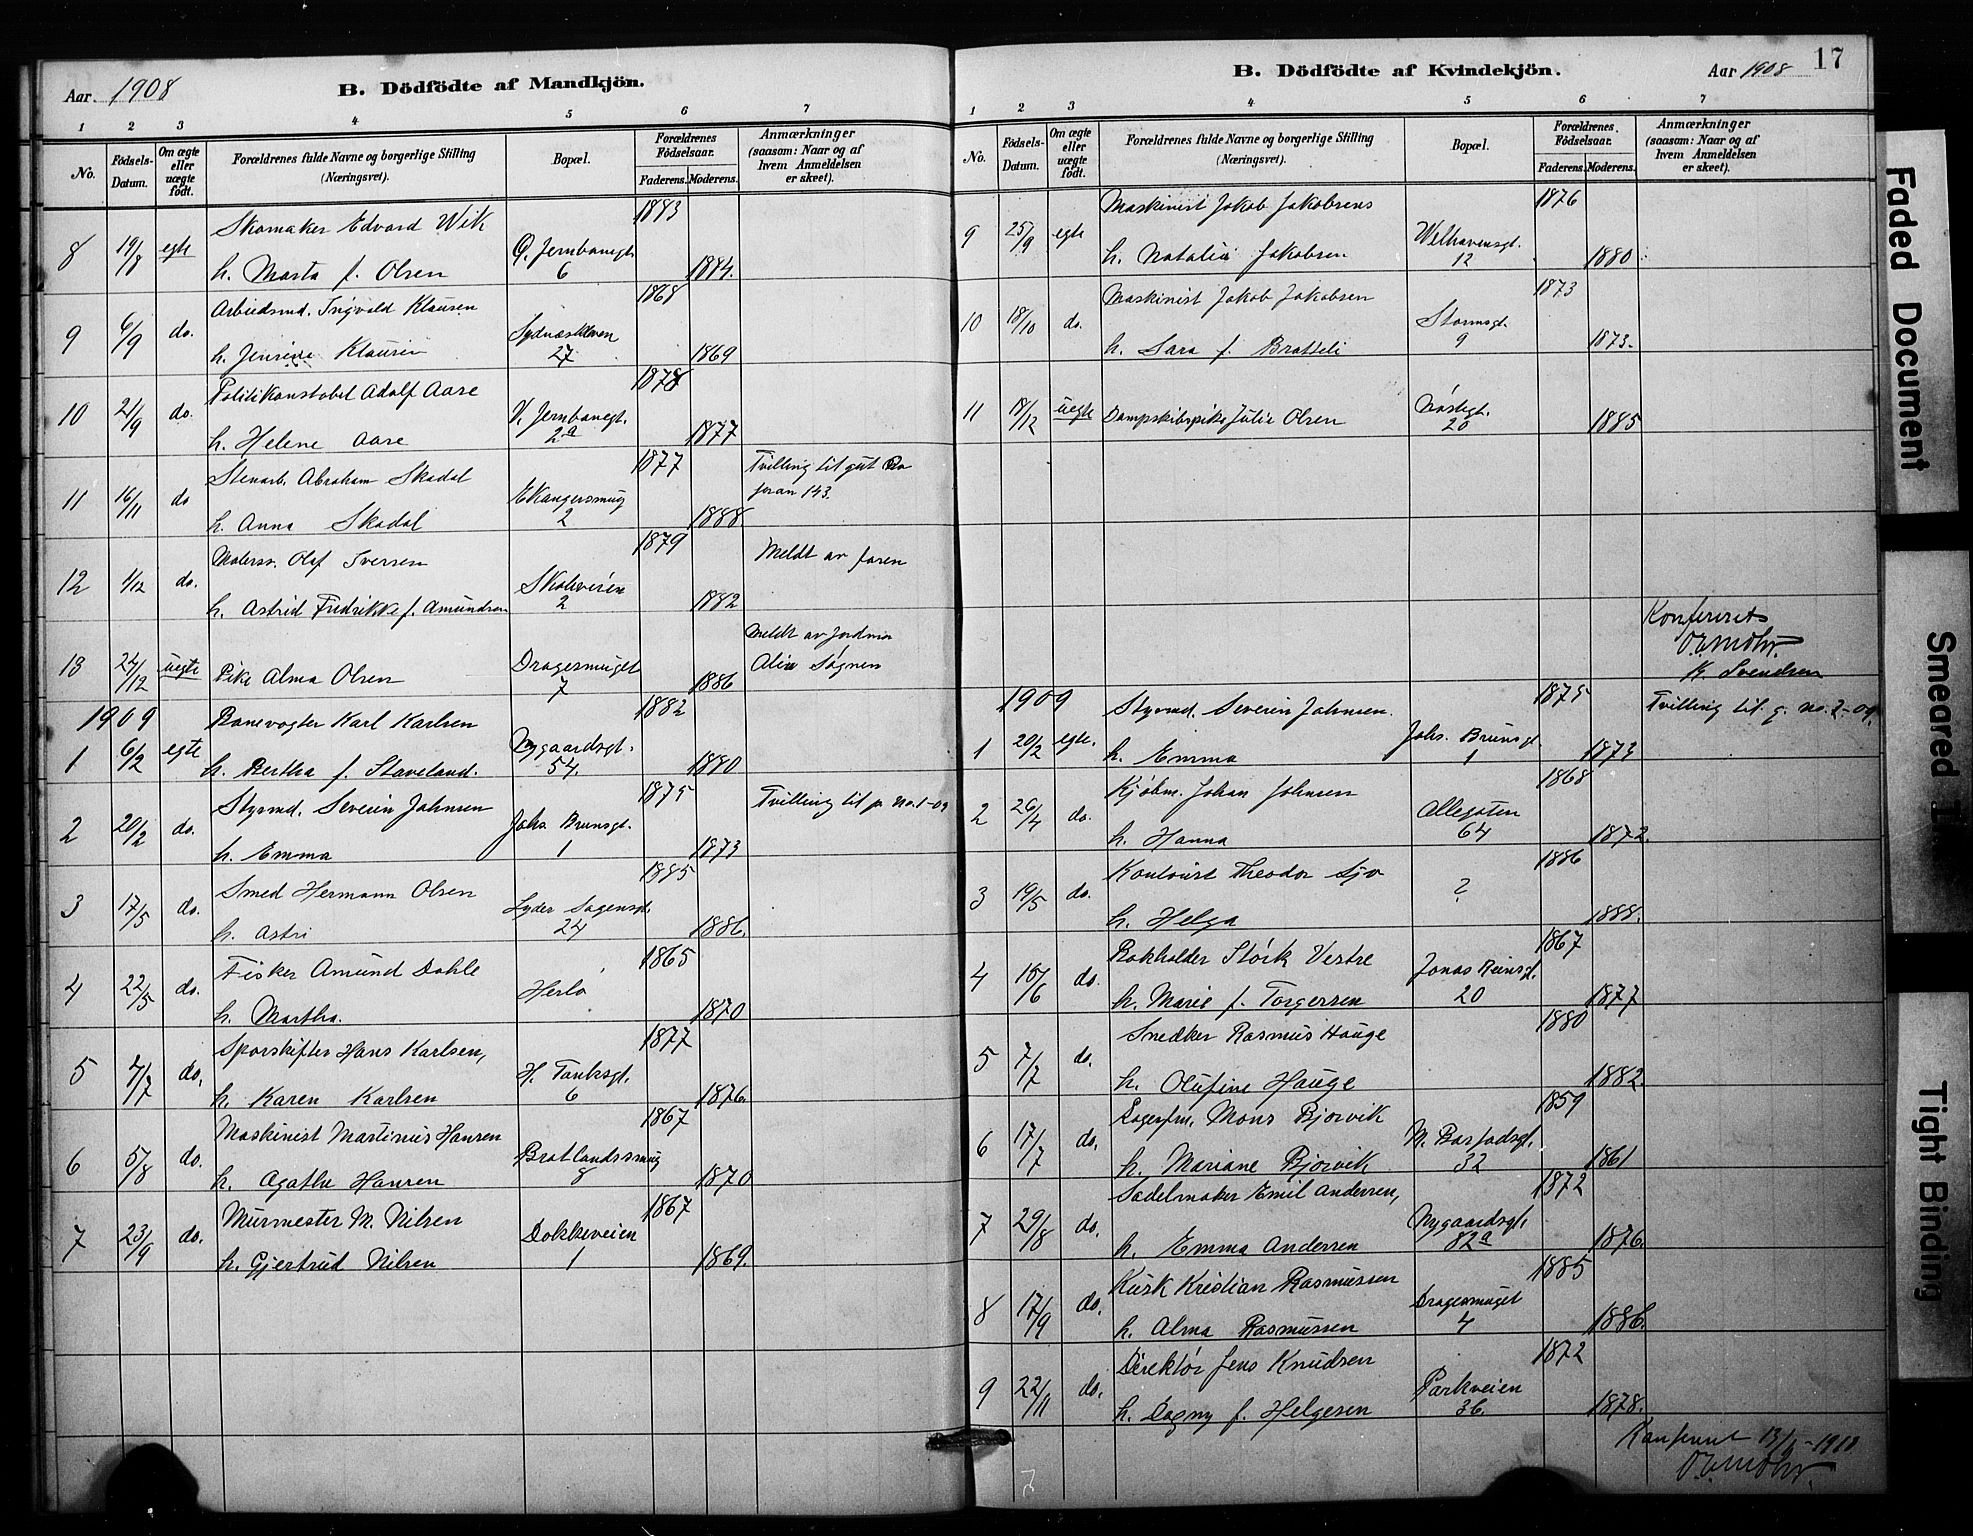 Aar. 1908
B. Dödfödte af Mandkjön.
1 2 3 4 5 6 7
No.
Födsels-Datum.
Om ægte eller uægte födt.
Forældrenes fulde Navne og borgerlige Stilling (Næringsvei).
Bopæl.
Forældrenes Födselsaar.
Faderens. Moderens.
Anmærkninger (saasom: Naar og af hvem Anmeldelsen er skeet).
8 19/8 egte Skomaker Edvard Wik 1883
h. Marta f. Olsen Ø. Jernbanegt. 6 1884.
9 6/9 do. Arbeidsmd. Ingvald Klausen 1868
h. Jensine Klausen 27 1869
10 21/9 do. Politikonstabel Adolf Aare 1878
h. Helene Aare V. Jernbanegt. 2a 1877
11 16/11 do Stenarb. Abraham Skadal 1877 Tvilling til gut
h. Anna Skadal Ekangersmug 2 1888 foran 143.
12 1/12 do. Malersv. Olaf Iversen 1879 Meldt av faren
h. Astrid Fredrikke f. Amundsen Skoleveien 2 1882
13 24/12 uegte Pike Alma Olsen Dragesmuget 7 1886 Meldt av Jordmor
Søgnen
1909
1 6/2 egte Banevogter Karl Karlsen 1882
h. Bertha f. Staveland. Nygaardsgt. 54. 1880
2 20/2 do. Styrmd. Severin Johnsen 1875 Tvilling til p. No. 1-09
h. Emma Johs. Brunsgt. 1 1873
3 17/5 do. Smed Hermann Olsen 1885
h. Astri Lyder Sagensgt. 24 1886.
4 22/5 do. Fisker Amund Dahle 1865
h. Martha. Herlo 1870
5 4/7 do. Sporskifter Hans Karlsen, 1877
h. Karen Karlsen H. Tanksgt. 6 1876.
6 5/8 do. Maskinist Martinus Hansen 1867
h. Agathe Hansen Bratlandssmug 8 1870
7 23/9 do. Murmester M. Nilsen 1867
h. Gjertrud Nilsen Dokkeveien 1 1869.
B. Dödfödte af Kvindekjön.
Aar 1908
17
1 2 3 4 5 6 7
No.
Födsels-Datum.
Om ægte eller uægte födt.
Forældrenes fulde Navne og borgerlige Stilling (Næringsvei).
Bopæl.
Forældrenes Födselsaar.
Faderens. Moderens.
Anmærkninger (saasom: Naar og af hvem Anmeldelsen er skeet).
9 25/9 egte Maskinist Jakob Jakobsens 1876
h. Natalia Jakobsen Welhavensgt. 12 1880
10 18/10 do. Maskinist Jakob Jakobsen 1873
h. Sara f. Bratteli Stormsgt. 9 1873.
11 18/12 uegte Dampskibspike Julie Olsen Nøstegt. 20 1885
Konfereret
K. Svendsen
1909
1 20/2 egte. Styrmd. Severin Johnsen. 1875 Tvilling til g. no. 2-09
h. Emma Johs. Brunsgt. 1 1873
2 26/4 do. Kjøbm. Johan Johnsen 1868
h. Hanna Allegaten 64 1872.
3 19/5 do. Kontorist Theodor 1886
h. Helga ? 1888.
4 15/6 do. Bokholder Størk Vestre 1867
h. Marie f. Torgersen Jonas Reinsgt. 20 1877
5 7/7 do. Snedker Rasmus Hauge 1880
h. Olufine Hauge 1882.
6 17/7 do. Lagerfm. Mons Bjorvik 1859
h. Mariane Bjorvik N. Bastadsgt. 32 1861
7 29/8 do. Sadelmaker Emil Andersen, 1872
h. Emma Andersen Nygaardsgt. 82a 1876.
8 17/9 do. Kusk Kristian Rasmussen 1885
h. Alma Rasmussen Dragesmuget 4 1886.
9 22/11 do. Direktør Jens Knudsen 1872
h. Dagny f. Helgesen Parkveien 36. 1878.
Faded Document
Smeared
Tight Binding